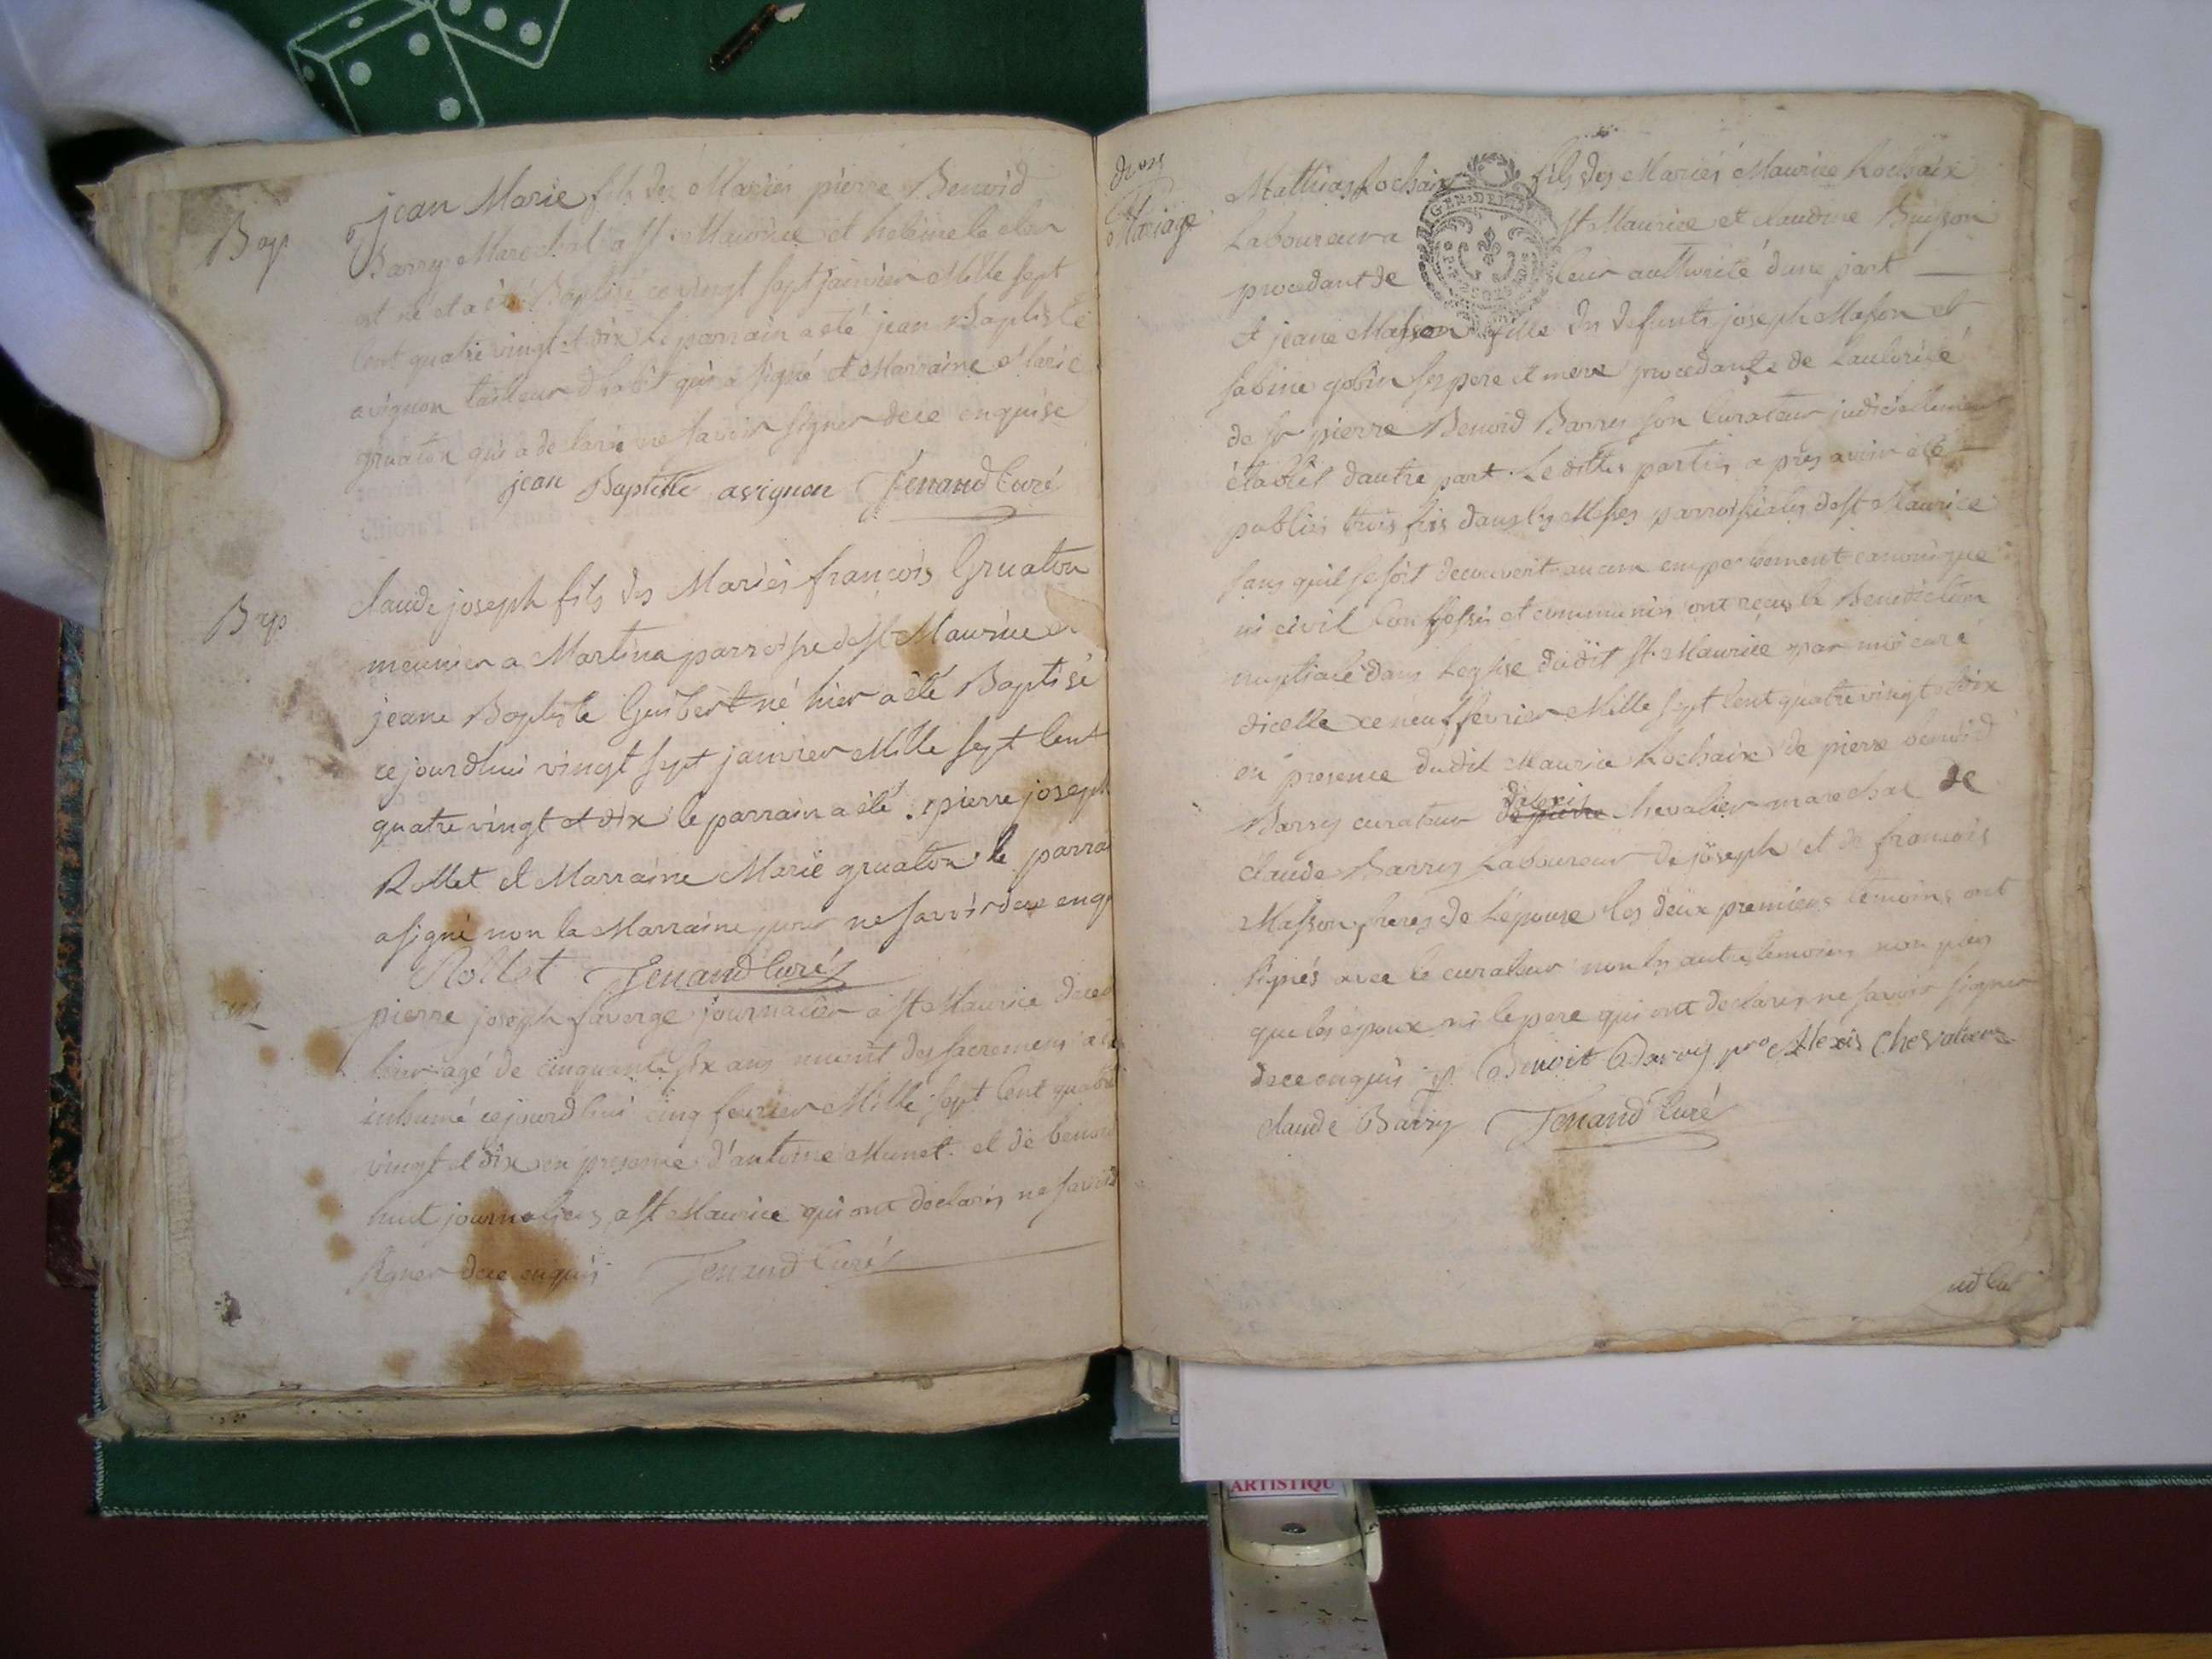 Bap
jean Marie fils des Mariés pierre Benoid
Barry Marechal a St Maurice et heleine le cler
est né et a été Baptisé ce vingt sept janvier Mille sept
Cent quatre vingt et dix Le parrain a eté jean Baptiste
avignon tailleur d'habit qui a signé et Marraine Marie
gruaton qui a declaré ne savoir signer dece enquise
jean Baptiste avignon Jenand Curé
Bap
Claude joseph fils des Mariés françois Gruaton
meunier a Martina parroisse de St Maurice et
jeane Baptiste Guibert né hier a été Baptisé
cejourdhui vingt sept janvier Mille sept Cent
quatre vingt et dix le parrain a été pierre joseph
Rollet et Marraine Marie gruaton le parra
a signé non la Marraine pour ne savoir dece enq
Rollet Jenand Curé
pierre joseph faverge journalier a St Maurice deced
hier agé de cinquante six ans munit des sacremens a eté
inhumé cejourdhui cinq fevrier Mille sept Cent quatre
vingt et dix en presence d'antoine Munet et de benoid
huit journaliers a St Maurice qui ont declarés ne savoir
signer dece enquis Jenand Curé
Mariage
Mathias Rochaix fils des Mariés Maurice Rochaix
Laboureur a St Maurice et claudine Buisson
procedant de leur authorité dune part
GEN·DE
Et jeane Masson fille des defunts joseph Masson et
sabine gobin ses pere et mere procedante de Lautorité
de Sr pierre Benoid Barry son Curateur judiciellement
établit dautre part. Le dittes parties apres avoir été
publiés trois fois dans les Messes parroissiales de St Maurice
sans quil se soit decouvert aucun empechement canonique
ni civil Confessés et communiés ont reçus la Benediction
nuptiale dans Leglise dudit St Maurice par moi curé
dicelle ce neuf fevrier Mille sept Cent quatre vingt et dix
en presence dudit Maurice Rochaix de pierre benoid
Barry curateur de pierre dalexis Chevalier marechal de
Claude Barry Laboureur de joseph et de françois
Masson freres de Lépouse les deux premiers temoins ont
signés avec le curateur non les autres temoins non plus
que les époux ni le pere qui ont declarés ne savoir signer
dece enquis p. Benoit Barry pro Alexis Chevalier
Claude Barry Jenand Curé
ARTISTIQU